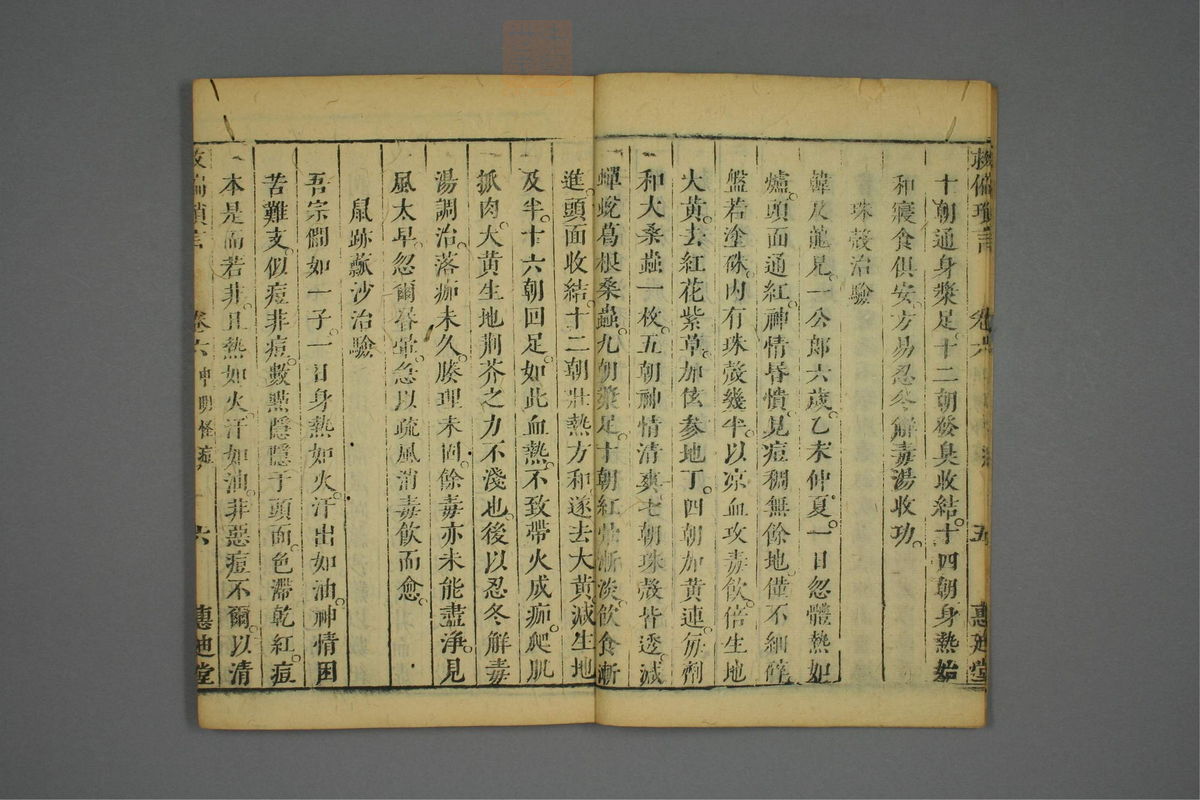 救偏瑣言 卷六 五 惠迪堂
十朝通身漿足。十二朝發臭收結。十四朝身熱始
和寢食俱安。方易忍冬解毒湯收功。
珠殼治驗
韓及龍兄一公郎六歲。乙未仲夏。一日忽體熱如
爐。頭面通紅。神情昏憒。見痘稠無餘地。僅不細碎
盤若塗硃。內有珠殼幾半。以凉血攻毒飲。倍生地
大黃。去紅花紫草。加玄參地丁。四朝加黃連。每劑
和大桑蟲一枚。五朝神情清爽。七朝珠殼皆透。減
蟬蛻葛根桑蟲。九朝漿足。十朝紅勢漸淡。飲食漸
進。頭面收結。十二朝壯熱方和。遂去大黃。減生地
及半。十六朝回足。如此血熱。不致帶火成痂。爬肌
抓肉。大黃生地荊芥之力不淺也。後以忍冬解毒
湯調治。落痂未久。腠理未固。餘毒亦未能盡淨。見
風太早。忽爾昏暈。急以疏風消毒飲而愈。
鼠跡蔴沙治驗
吾宗僩如一子。一日身熱如火。汗出如油。神情困
苦難支。似痘非痘。數點隱隱于頭面。色滯乾紅。痘
本是而若非。且熱如火。汗如油。非惡痘不爾。以清
救偏瑣言 卷六 申明怪痘 六 惠迪堂